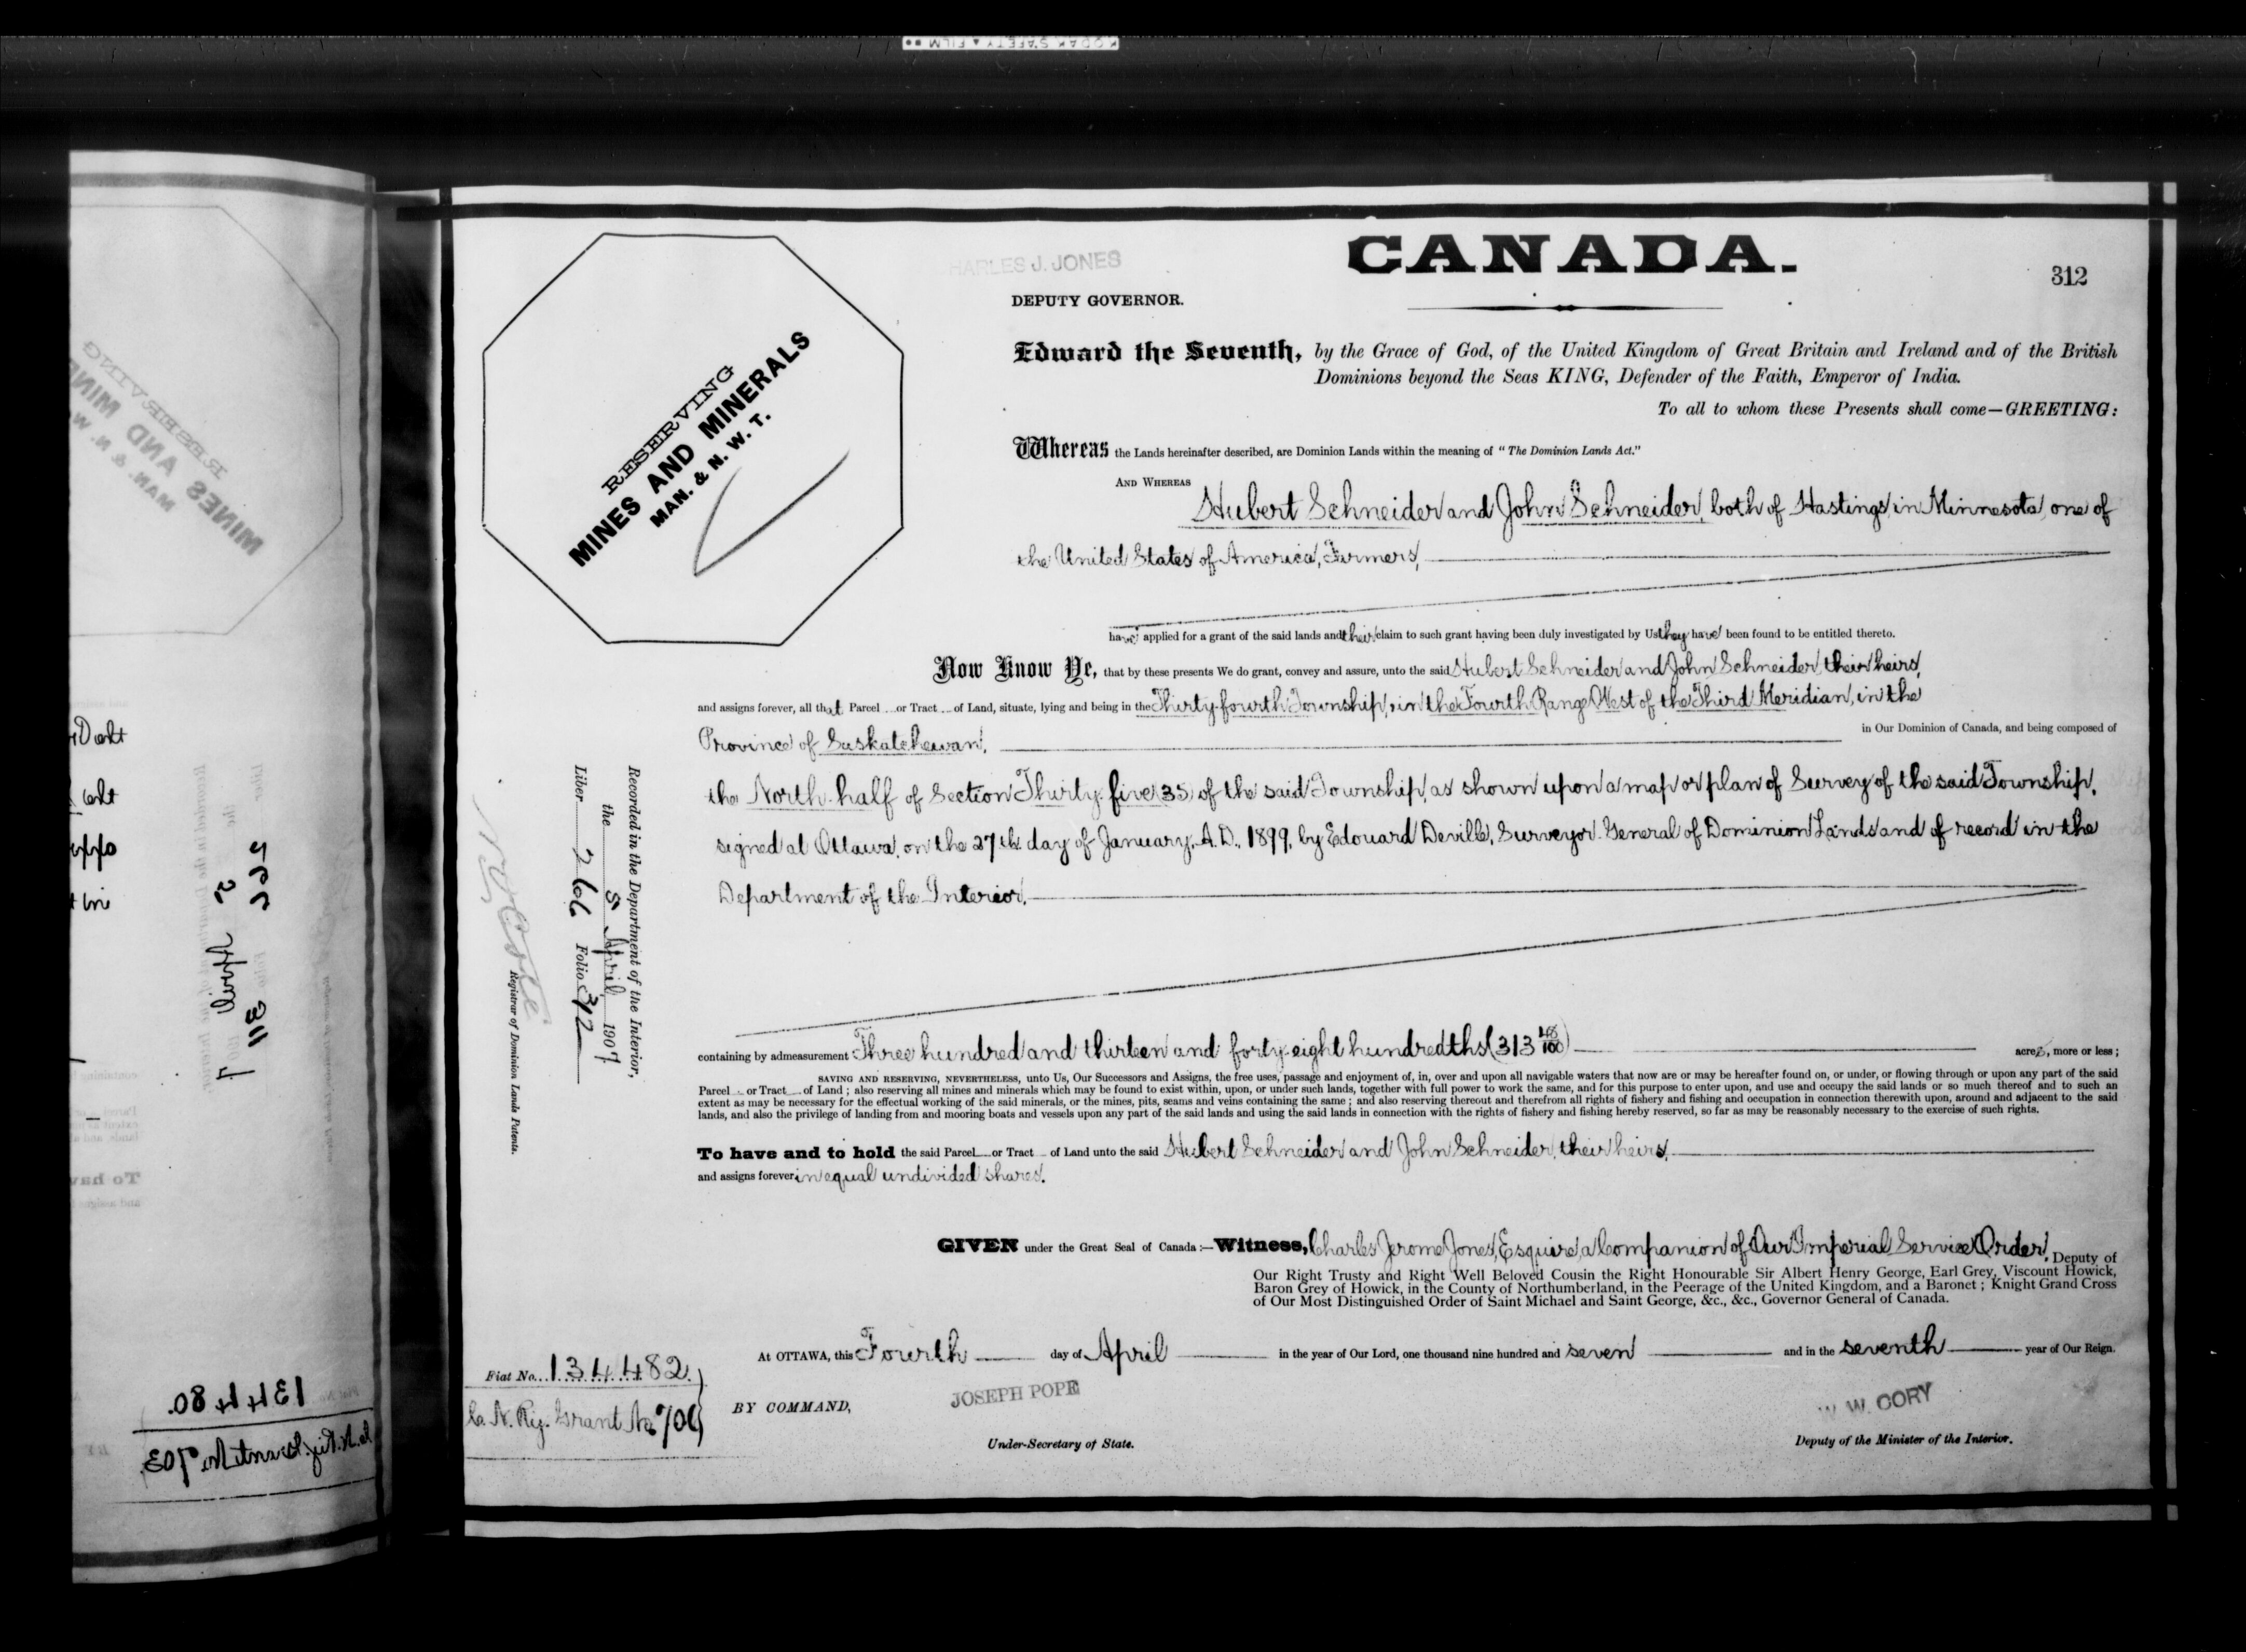 KODAK SAFETY ▲ FILM
CHARLES J. JONES
CANADA.
312
DEPUTY GOVERNOR.
RESERVING
MINES AND MINERALS
MAN. & N. W. T.
Edward the Seventh, by the Grace of God, of the United Kingdom of Great Britain and Ireland and of the British
Dominions beyond the Seas KING, Defender of the Faith, Emperor of India.
To all to whom these Presents shall come—GREETING:
Whereas the Lands hereinafter described, are Dominion Lands within the meaning of "The Dominion Lands Act."
AND WHEREAS Hubert Schneider and John Schneider, both of Hastings, in Minnesota, one of
the United States of America, Farmers,
have applied for a grant of the said lands and their claim to such grant having been duly investigated by Us they have been found to be entitled thereto.
Now Know Ye, that by these presents We do grant, convey and assure, unto the said Hubert Schneider and John Schneider, their heirs,
and assigns forever, all that Parcel or Tract of Land, situate, lying and being in the Thirty-fourth Township, in the Fourth Range West of the Third Meridian, in the
Province of Saskatchewan, in Our Dominion of Canada, and being composed of
the North-half of Section Thirty-five (35) of the said Township, as shown upon a map or plan of Survey of the said Township,
signed at Ottawa, on the 27th day of January, A.D., 1899, by Edouard Deville, Surveyor-General of Dominion Lands and of record in the
Department of the Interior.
containing by admeasurement Three hundred and thirteen and forty-eight hundredths (313 48/100) acres, more or less;
SAVING AND RESERVING, NEVERTHELESS, unto Us, Our Successors and Assigns, the free uses, passage and enjoyment of, in, over and upon all navigable waters that now are or may be hereafter found on, or under, or flowing through or upon any part of the said
Parcel or Tract of Land; also reserving all mines and minerals which may be found to exist within, upon, or under such lands, together with full power to work the same, and for this purpose to enter upon, and use and occupy the said lands or so much thereof and to such an
extent as may be necessary for the effectual working of the said minerals, or the mines, pits, seams and veins containing the same; and also reserving thereout and therefrom all rights of fishery and fishing and occupation in connection therewith upon, around and adjacent to the said
lands, and also the privilege of landing from and mooring boats and vessels upon any part of the said lands and using the said lands in connection with the rights of fishery and fishing hereby reserved, so far as may be reasonably necessary to the exercise of such rights.
To have and to hold the said Parcel or Tract of Land unto the said Hubert Schneider and John Schneider, their heirs,
and assigns forever in equal undivided shares.
GIVEN under the Great Seal of Canada:—Witness, Charles Jerome Jones, Esquire, a Companion of Our Imperial Service Order, Deputy of
Our Right Trusty and Right Well Beloved Cousin the Right Honourable Sir Albert Henry George, Earl Grey, Viscount Howick,
Baron Grey of Howick, in the County of Northumberland, in the Peerage of the United Kingdom, and a Baronet; Knight Grand Cross
of Our Most Distinguished Order of Saint Michael and Saint George, &c., &c., Governor General of Canada.
At OTTAWA, this Fourth day of April in the year of Our Lord, one thousand nine hundred and seven and in the seventh year of Our Reign.
BY COMMAND,
JOSEPH POPE
Under-Secretary of State.
W. W. CORY
Deputy of the Minister of the Interior.
Recorded in the Department of the Interior,
the 5 April 1907
Liber 266 Folio 312
Registrar of Dominion Lands Patents.
Fiat No. 134482.
Ry. Grant No 706
RESERVING
MINES AND MIN
MAN. & N. W.
266 311
5 April 7
134480.
Grant No 703.